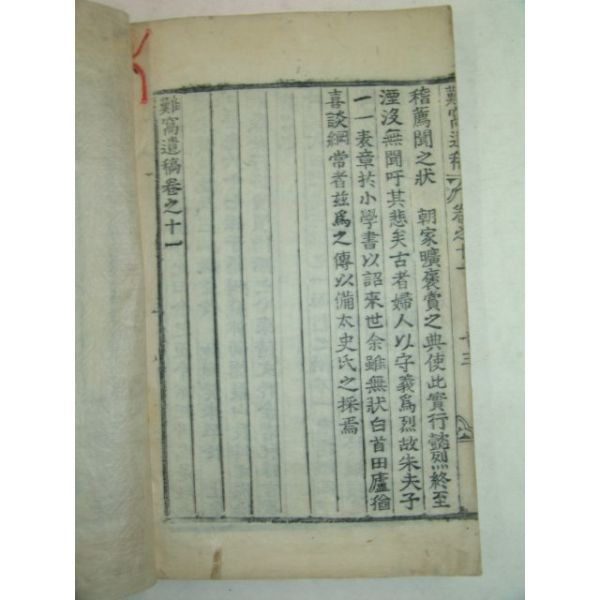 難窩遺稿 卷之十一
稽薦聞之狀 朝家曠褒賞之典使此實行懿烈終至
湮沒無聞吁其悲矣古者婦人以守義爲烈故朱夫子
一一表章於小學書以詔來世余雖無狀白首田廬猶
喜談綱常者玆爲之傳以備太史氏之採焉
難窩遺稿卷之十一